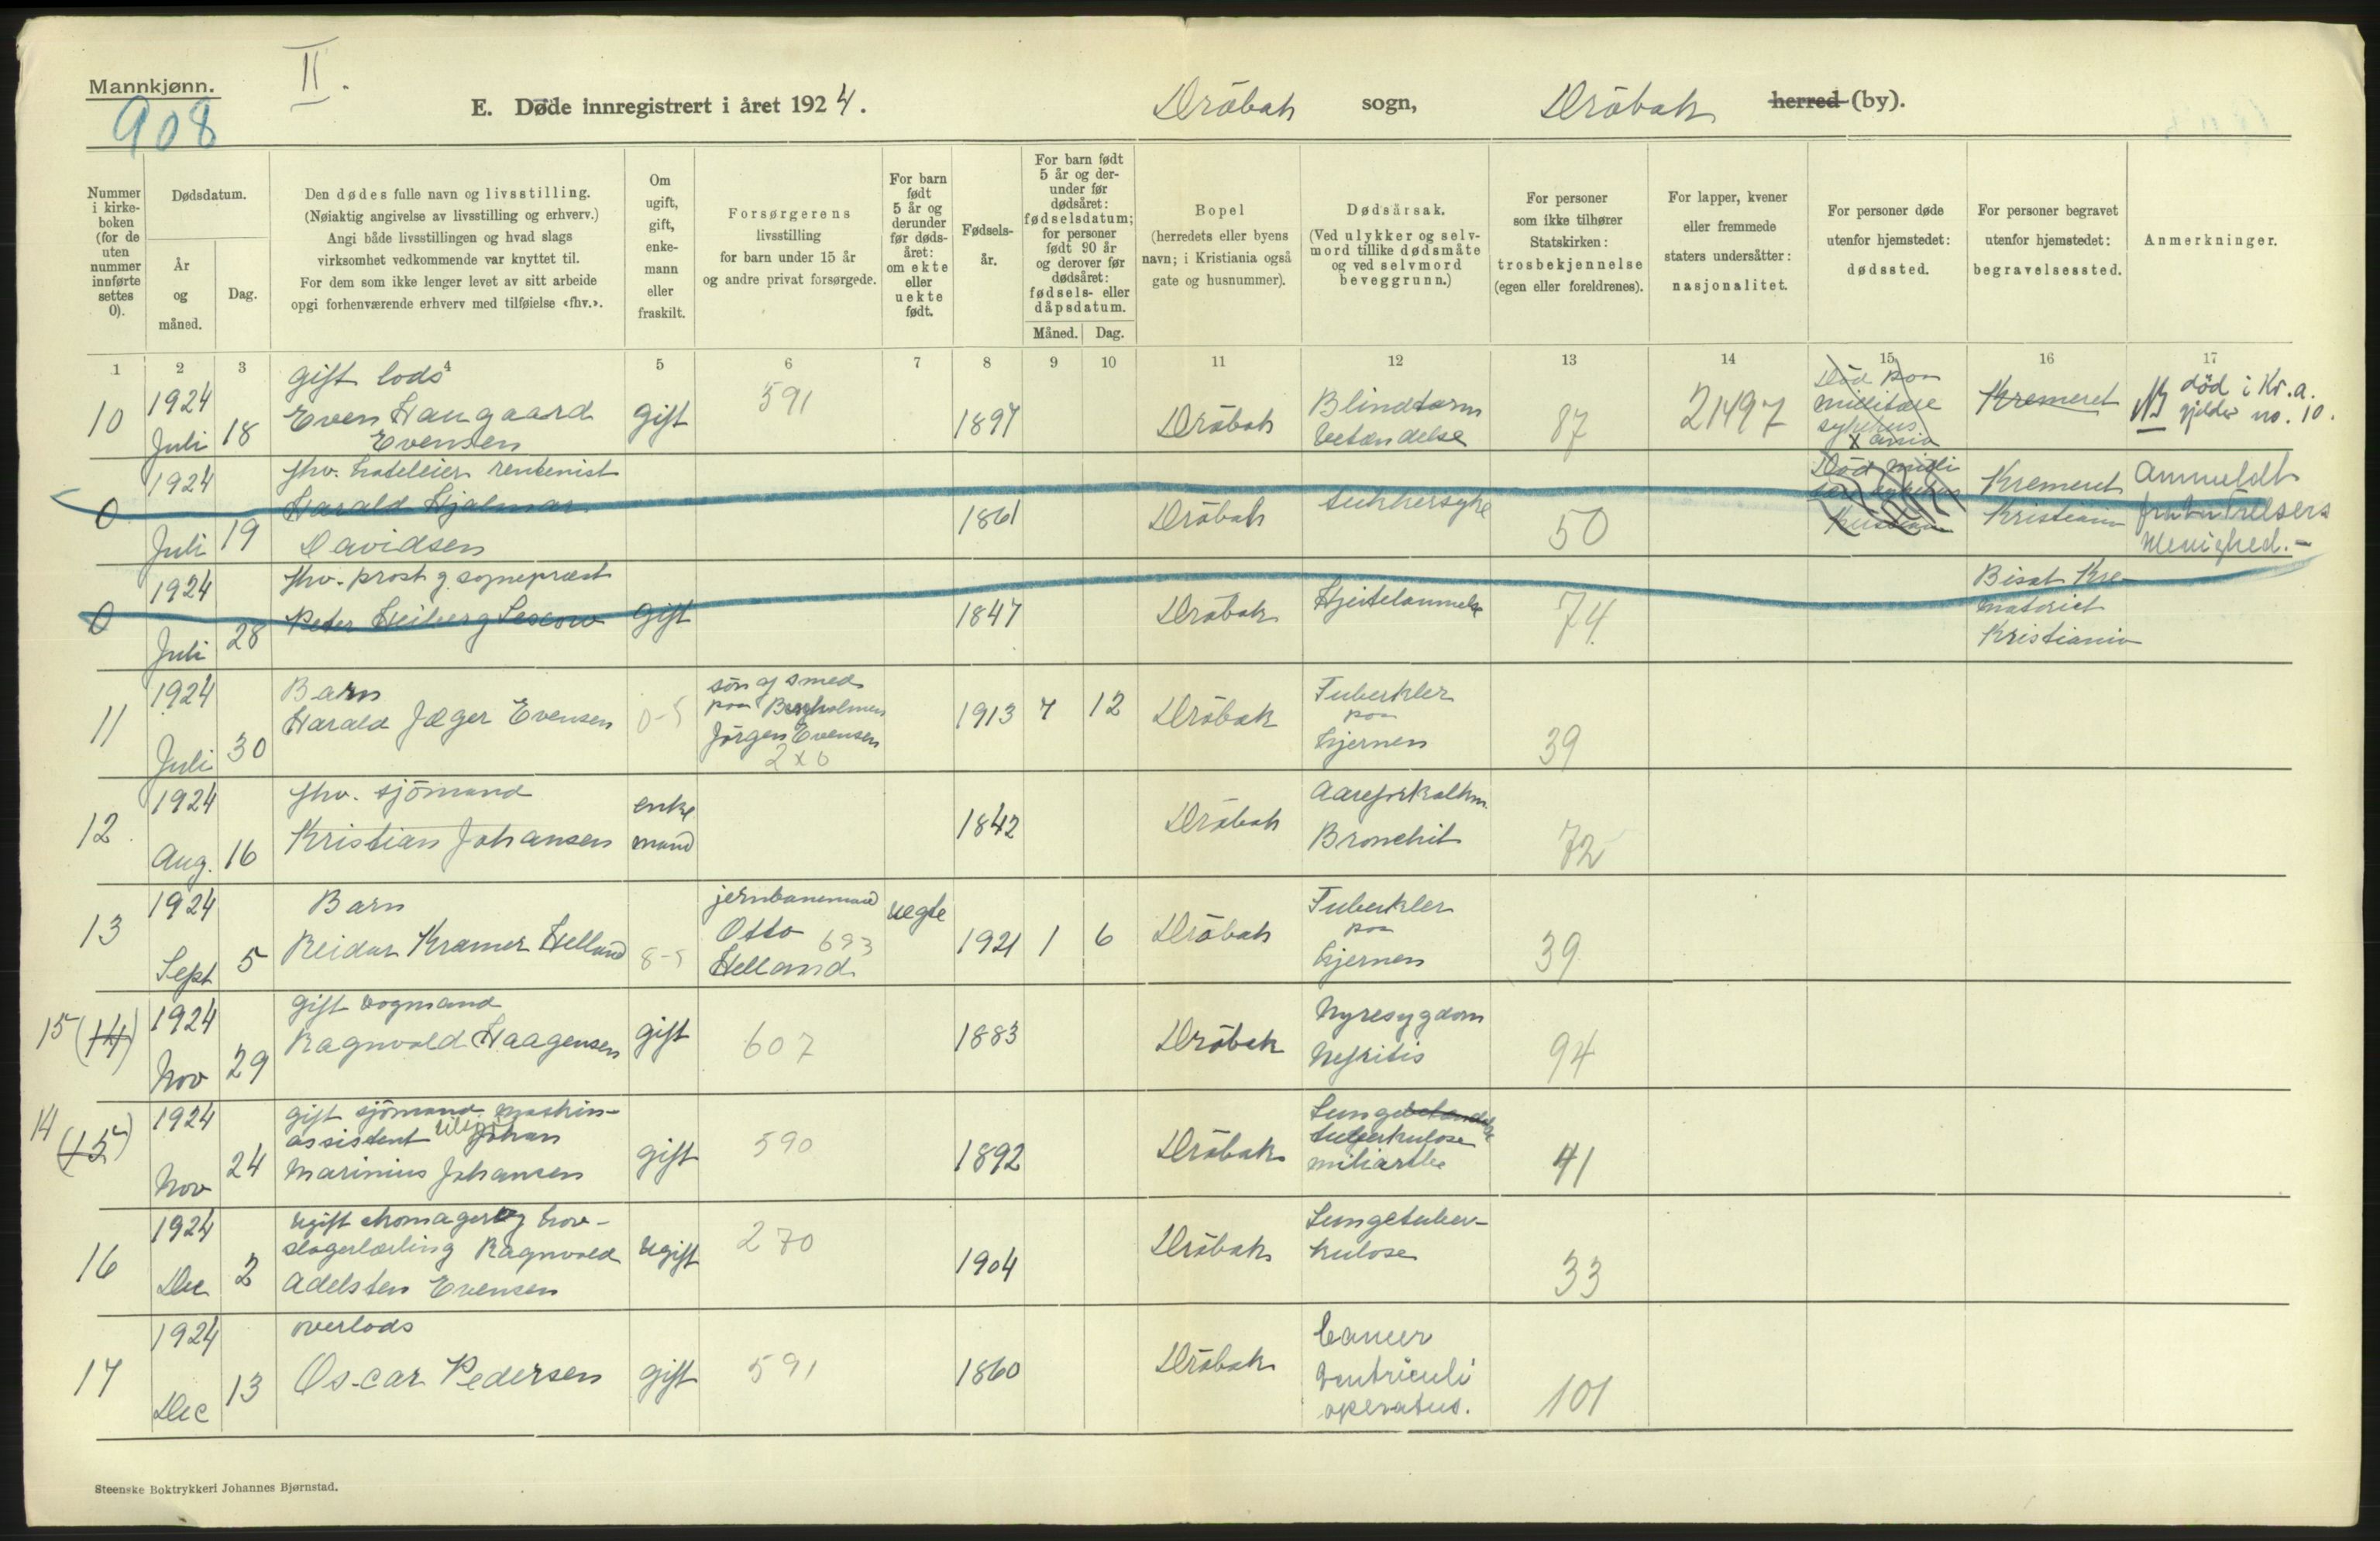 Mannkjønn.
II.
908
E. Døde innregistrert i året 1924.
Dröbak sogn, Dröbak herred (by).
Nummer i kirkeboken (for de uten nummer innførte settes 0).
Dødsdatum.
År og måned.
Dag.
Den dødes fulle navn og livsstilling.
(Nøiaktig angivelse av livsstilling og erhverv.)
Angi både livsstillingen og hvad slags
virksomhet vedkommende var knyttet til.
For dem som ikke lenger levet av sitt arbeide
opgi forhenværende erhverv med tilføielse «fhv.».
Om ugift, gift, enkemann eller fraskilt.
Forsørgerens
livsstilling
for barn under 15 år
og andre privat forsørgede.
For barn født 5 år og derunder før dødsåret: om ekte eller uekte født.
Fødselsår.
For barn født 5 år og derunder før dødsåret: fødselsdatum; for personer født 90 år og derover før dødsåret: fødsels- eller dåpsdatum.
Måned. Dag.
Bopel
(herredets eller byens
navn; i Kristiania også
gate og husnummer).
Dødsårsak.
(Ved ulykker og selvmord tillike dødsmåte
og ved selvmord
beveggrunn.)
For personer
som ikke tilhører
Statskirken:
trosbekjennelse
(egen eller foreldrenes).
For lapper, kvener
eller fremmede
staters undersåtter:
nasjonalitet.
For personer døde
utenfor hjemstedet:
dødssted.
For personer begravet
utenfor hjemstedet:
begravelsessted.
Anmerkninger.
1 2 3 4 5 6 7 8 9 10 11 12 13 14 15 16 17
10 1924 Juli 18
gift lods
Even Haugaard
Evensen
gift 591 1897 Dröbak
Blindtarm
betændelse
87 21497
Död paa
militære
sykehus
Kremeret
NB död i Kr.a.
gjelder no. 10.
0 1924 Juli 19
fhv. hoteleier rentenist
Harald Hjalmar
Davidsen
1861 Dröbak
Sukkersyke
50
Död
Kremeret
Kristiania
Anmeldt
fra Frelsers
Menighed.-
0 1924 Juli 28
fhv. prost g sogneprest
Peter Heiberg Lescow
gift 1847 Dröbak
Hjertelammelse
74
Bisat Kre-
matoriet
Kristiania
11 1924 Juli 30
Barn
Harald Jæger Evensen
0-5
sön af smed
paa
Jörgen Evensen
2x0
1913 7 12 Dröbak
Tuberkler
paa
hjernen
39
12 1924 Aug. 16
fhv. sjömand
Kristian Johansen
enke
mand
1842 Dröbak
Aareforkalkn.
Bronchit
72
13 1924 Sept 5
Barn
Reidar Kramer Helland
8-5
jernbanemand
Otto 693
Helland
uegte
1921 1 6 Dröbak
Tuberkler
paa
hjernen
39
15 (14) 1924 Nov 29
gift vogmand
Ragnvald Haagensen
gift 607 1883 Dröbak
Nyresygdom
Nefritis
94
14 (15) 1924 Nov 24
gift sjömand maskin-
assistent Johan
Marinius Johansen
gift 590 1892 Dröbak
Lungebetændelse
tuberkulose
miliartbc
41
16 1924 Dec 2
ugift skomager og hov-
slagerlærling Ragnvald
Adelsten Evensen
ugift 270 1904 Dröbak
Lungetuber-
kulose
33
17 1924 Dec 13
overlods
Oscar Pedersen
gift 591 1860 Dröbak
Cancer
Ventriculi
operatus.
101
Steenske Boktrykkeri Johannes Bjørnstad.